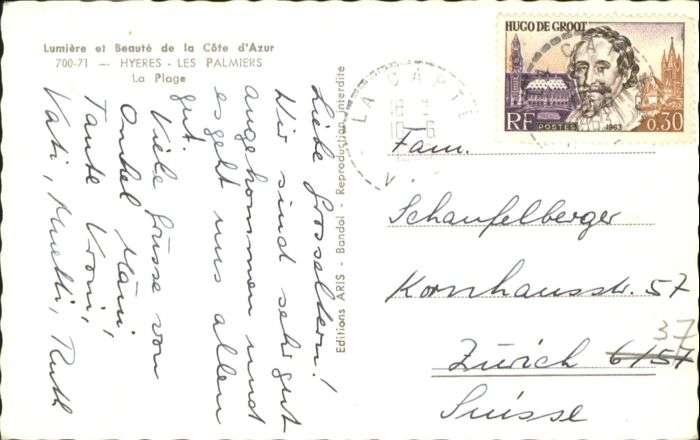 Lumière et Beauté de la Côte d'Azur
700-71 — HYERES - LES PALMIERS
La Plage
Liebe Grosseltern!
Wir sind sehr gut
angekommen und
es geht uns allen
gut.
Viele Grüsse von
Onkel Mäni,
Tante Vroni,
Vati, Muetti, Ruth
Editions ARIS - Bandol - Reproduction Interdite
LA CAPTE
HUGO DE GROOT
RF POSTES 1963 0,30
Fam.
Schaufelberger
Kornhausstr. 57
37
Zürich 6/57
Suisse